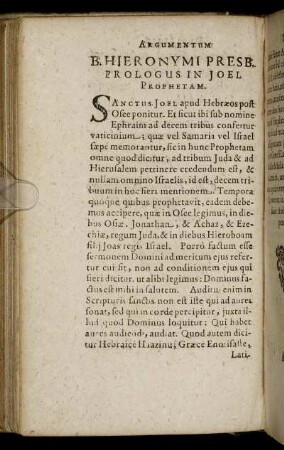 ARGUMENTUM
B. HIERONYMI PRESB.
PROLOGUS IN JOEL
PROPHETAM.
SANCTUS JOEL apud Hebræos post
Osee ponitur. Et sicut ibi sub nomine
Ephraim ad decem tribus confertur
vaticinium; quæ vel Samaria vel Israel
sæpe memorantur, sic in hunc Prophetam
omne quod dicitur, ad tribum Juda & ad
Hierusalem pertinere credendum est, &
nullam omnino Israelis, id est, decem tri-
buum in hoc fieri mentionem. Tempora
quoque quibus prophetavit, eadem debe-
mus accipere, quæ in Osee legimus, in die-
bus Osiæ, Jonathan, & Achaz, & Eze-
chiæ, regum Juda, & in diebus Hieroboam
filij Joas regis Israel. Porrò factum esse
sermonem Domini ad meritum ejus refer-
tur cui fit, non ad conditionem ejus qui
fieri dicitur. ut alibi legimus: Dominus fa-
ctus est mihi in salutem. Auditu enim in
Scripturis sanctis non est iste qui ad aures
sonat, sed qui in corde percipitur, juxta il-
lud quod Dominus loquitur: Qui habet
aures audiendi, audiat. Quod autem dici-
tur Hebraicè Hiazinu, Græce Enotisasse,
Lati-